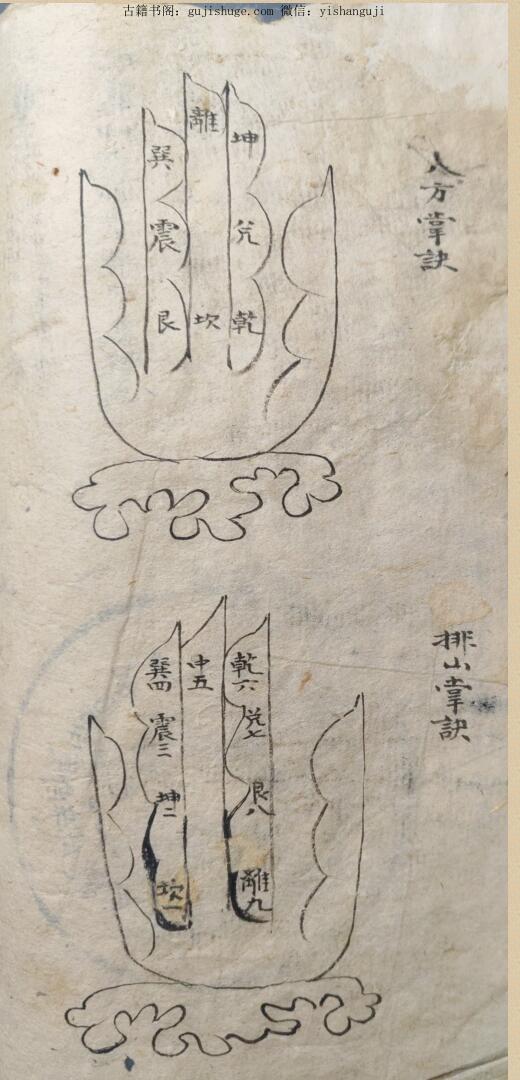 古籍书阁：gujishuge.com 微信：yishanguji
八方掌訣
離
巽
坤
震
兌
艮
坎
乾
排山掌訣
巽四
中五
乾六
震三
兌七
坤二
艮八
坎一
離九